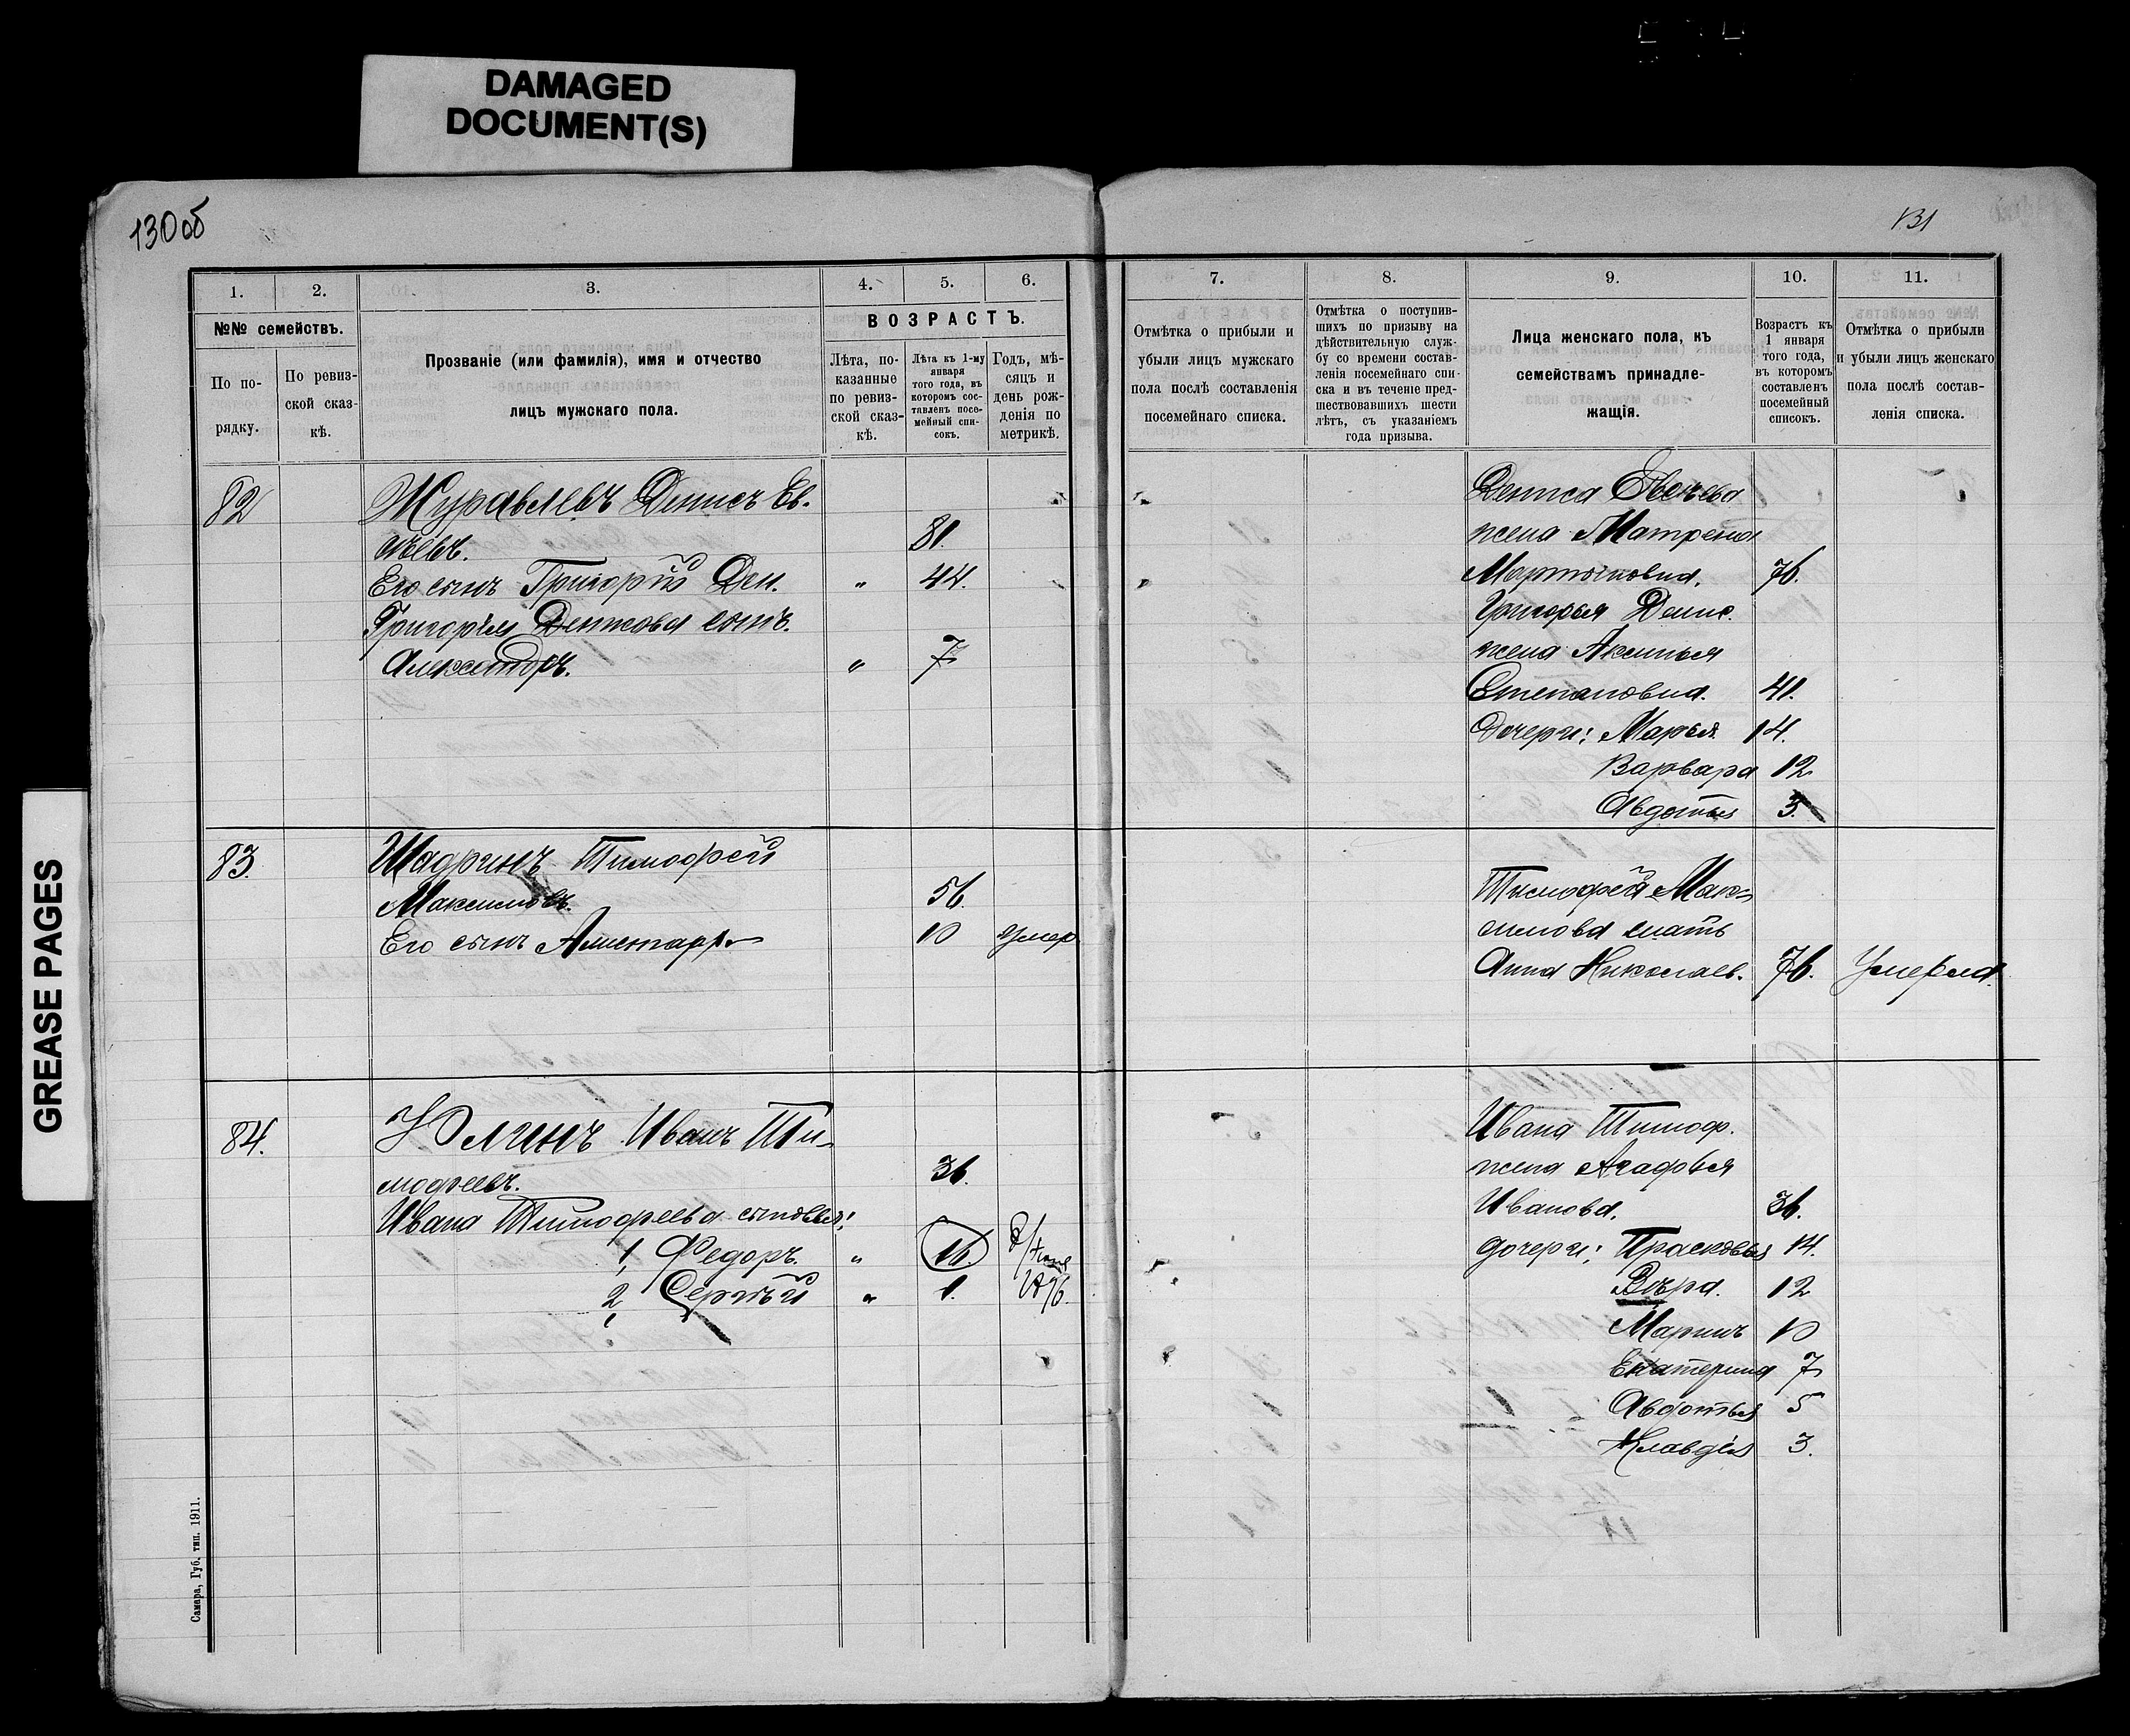 DAMAGED
DOCUMENT(S)
GREASE PAGES
130об
131
1.
2.
3.
4.
5.
6.
№№ семействъ.
По по-
рядку.
По ревиз-
ской сказ-
кѣ.
Прозваніе (или фамилія), имя и отчество
лицъ мужскаго пола.
ВОЗРАСТЪ.
Лѣта, по-
казанные
по ревиз-
ской сказ-
кѣ.
Лѣта къ 1-му
января
того года, въ
которомъ сос-
тавленъ посе-
мейный спи-
сокъ.
Годъ, мѣ-
сяцъ и
день рож-
денія по
метрикѣ.
7.
8.
9.
10.
11.
Отмѣтка о прибыли и
убыли лицъ мужскаго
пола послѣ составленія
посемейнаго списка.
Отмѣтка о поступив-
шихъ по призыву на
дѣйствительную служ-
бу со времени состав-
ленія посемейнаго спи-
ска и въ теченіе пред-
шествовавшихъ шести
лѣтъ, съ указаніемъ
года призыва.
Лица женскаго пола, къ
семействамъ принадле-
жащія.
Возрастъ къ
1 января
того года,
въ которомъ
составленъ
посемейный
списокъ.
Отмѣтка о прибыли
и убыли лицъ женскаго
пола послѣ состав-
ленія списка.
82
Журавлевъ Денисъ Ев.
81.
Его сынъ Григорій Ден. " 44.
Григорія Денисова сынъ.
Александръ. " 7
Дениса
жена Матрена
Мартыновна. 76.
Григорья Денис.
жена Аксинья
Степановна. 41.
Дочери: Марья 14.
Варвара 12
Авдотья 3.
83.
Шадринъ Тимофей
Максимовъ. 56.
Его сынъ 10 умер
Тимофей Мак-
симова мать
Анна Николаев. 76. Умерла.
84.
Юлинъ Иванъ Ти-
мофеевъ. 36.
Ивана Тимофеева сыновья:
1, Федоръ. " 16.
2, Сергѣй " 1.
Ивана Тимоф.
жена Агафья
Иванова. 36.
дочери: Прасковья 14.
Вѣра. 12
Марина 10
Екатерина 7
Авдотья 5
Клавдія 3.
Самара, Губ. тип. 1911.